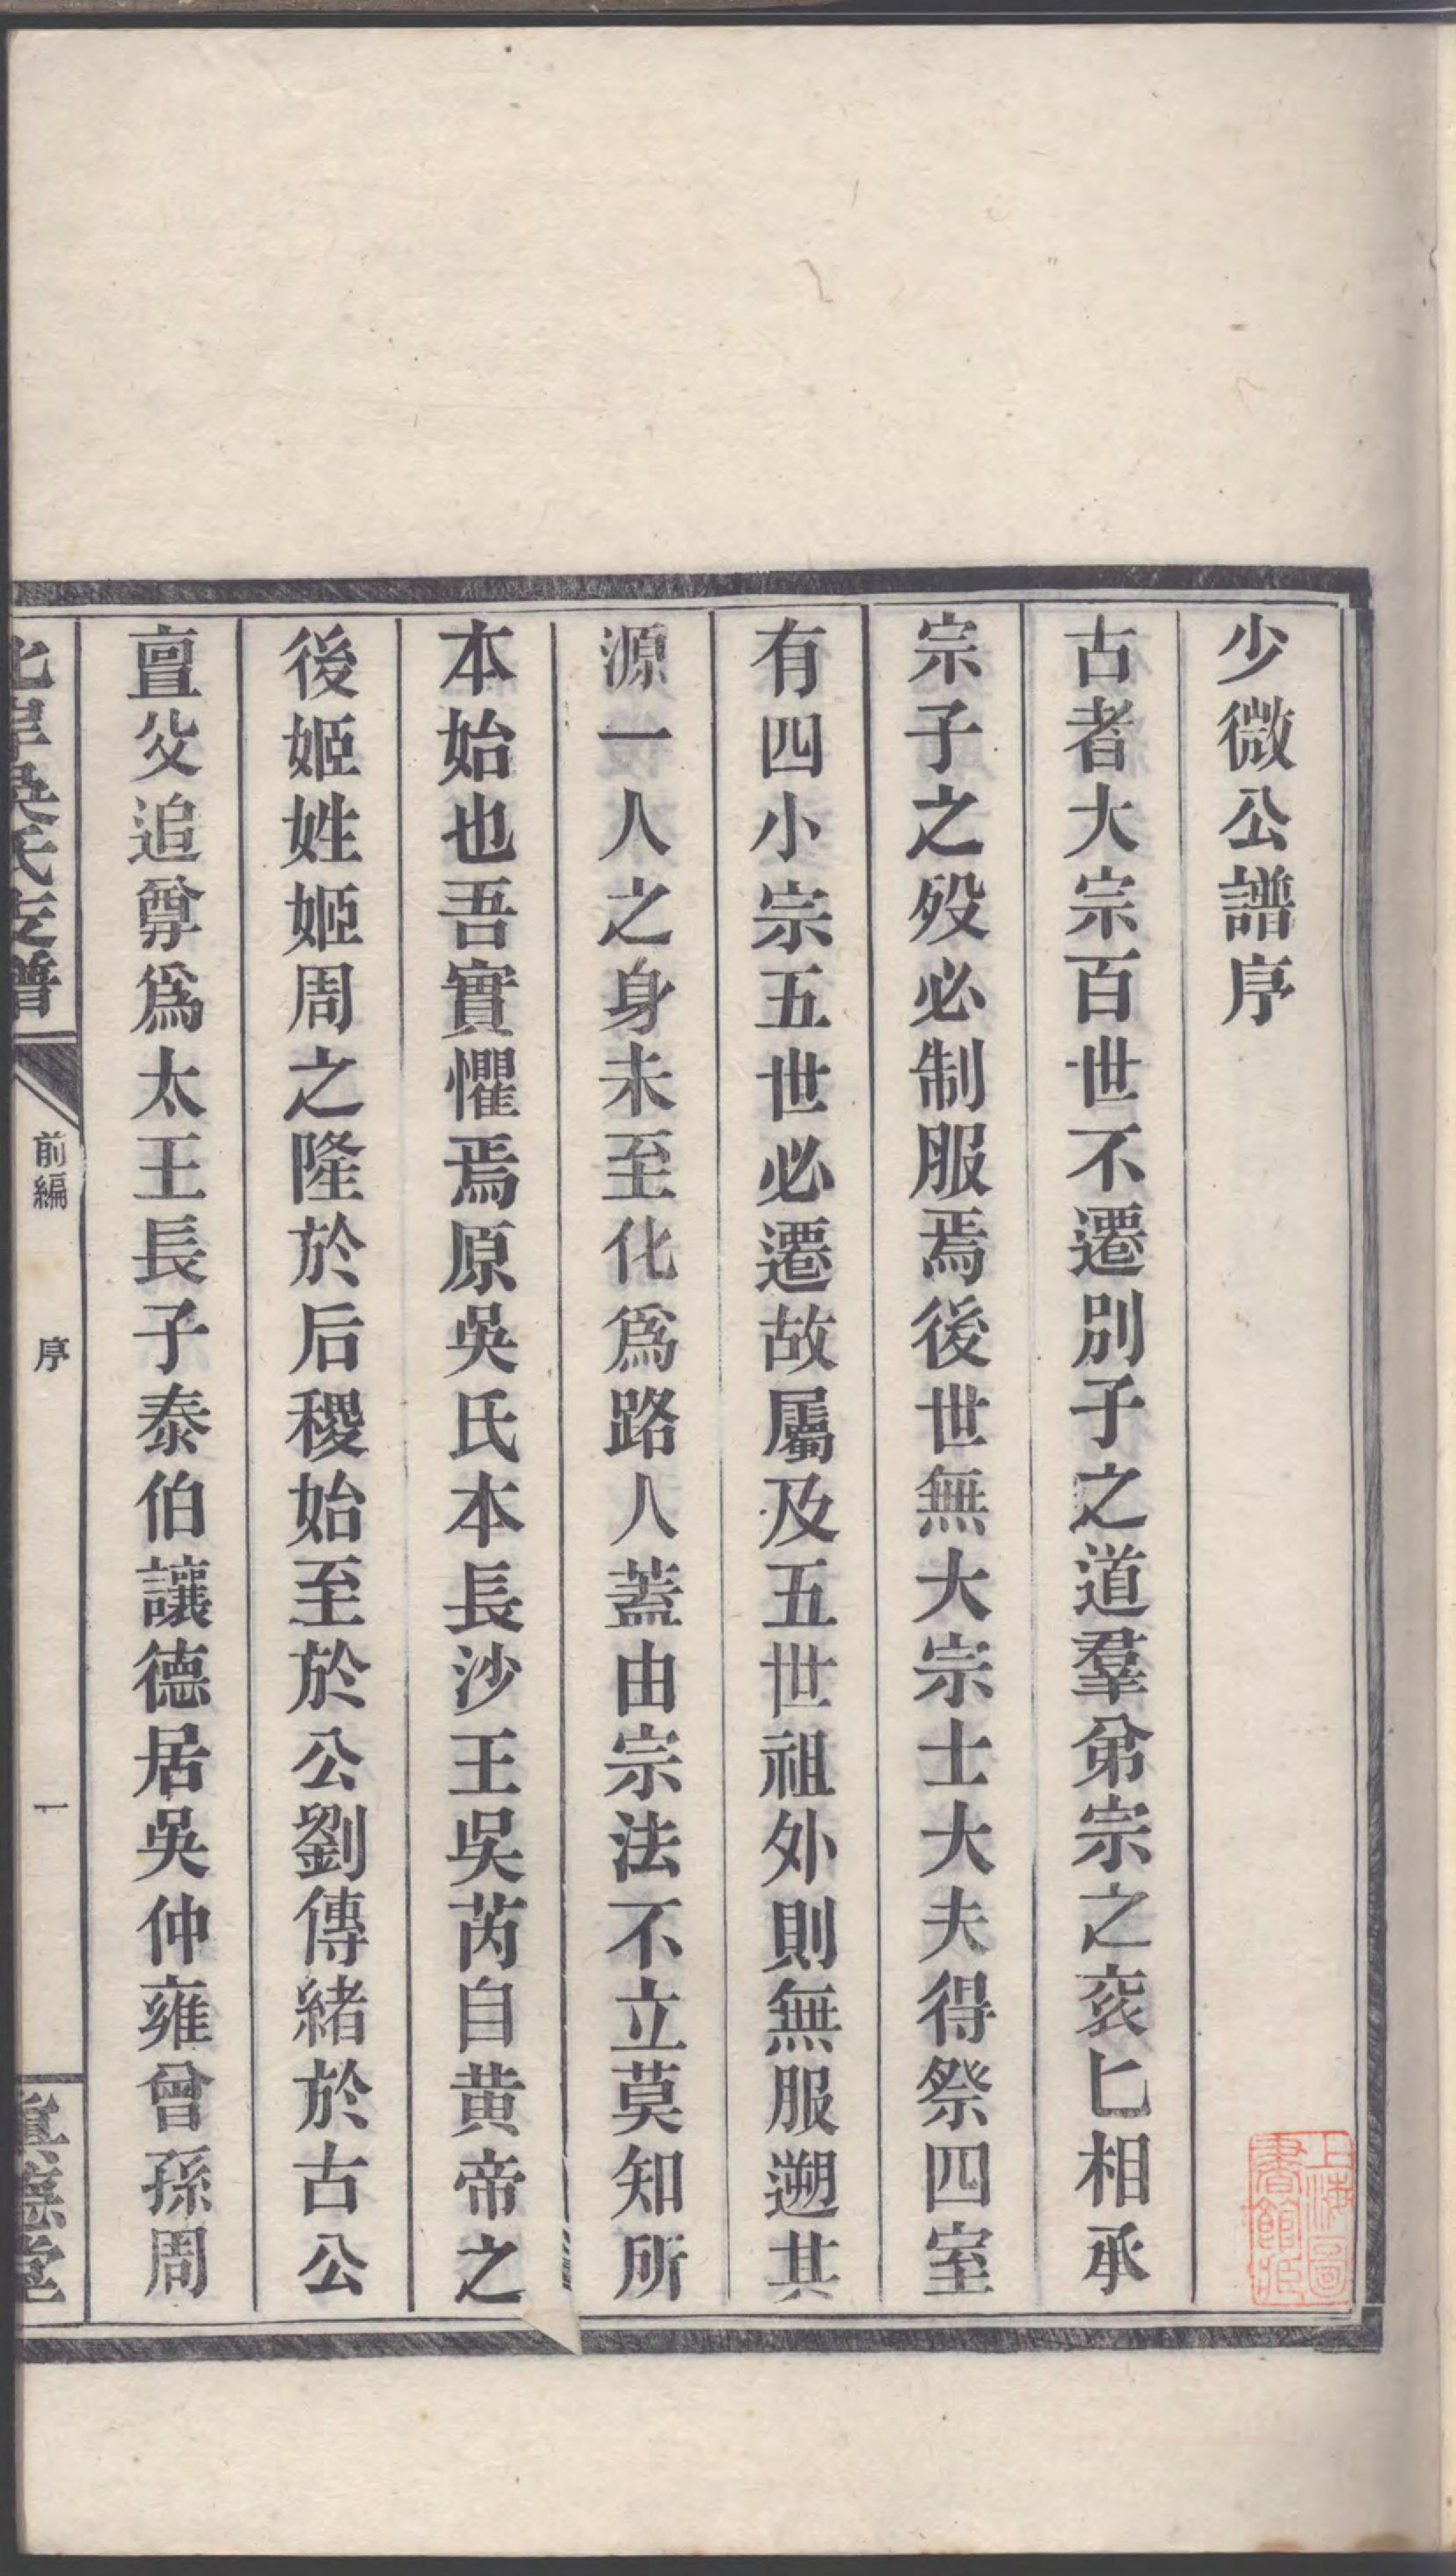 少微公譜序
古者大宗百世不遷別子之道羣弟宗之衮匕相承
宗子之歿必制服焉後世無大宗士大夫得祭四室
有四小宗五世必遷故屬及五世祖外則無服遡其
源一人之身未至化爲路人蓋由宗法不立莫知所
本始也吾實懼焉原吳氏本長沙王吳芮自黄帝之
後姬姓姬周之隆於后稷始至於公劉傳緒於古公
亶父追尊爲太王長子泰伯讓德居吳仲雍曾孫周
北岸吳氏支譜
前編
序
一
眞德堂
上海圖
書館藏